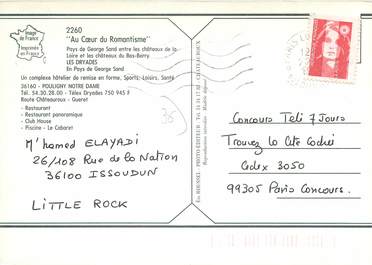 Image
de France
Imprimée
en France
2260
"Au Cœur du Romantisme"
Pays de George Sand entre les châteaux de la
Loire et les châteaux du Bas-Berry
LES DRYADES
En Pays de George Sand
Un complexe hôtelier de remise en forme, Sports, Loisirs, Santé
36160 - POULIGNY NOTRE DAME
Tél. 54.30.28.00 - Télex Dryades 750 945 F
Route Châteauroux - Gueret
- Restaurant
- Restaurant panoramique
- Club House
- Piscine - Le Cabaret
36
M'hamed ELAYADI
26/108 Rue de la Nation
36100 ISSOUDUN
LITTLE ROCK
Reproductions interdites - Modèle déposé
Concours Télé 7 Jours
Trouvez la Cité Codée
Cedex 3050
99305 Paris Concours.